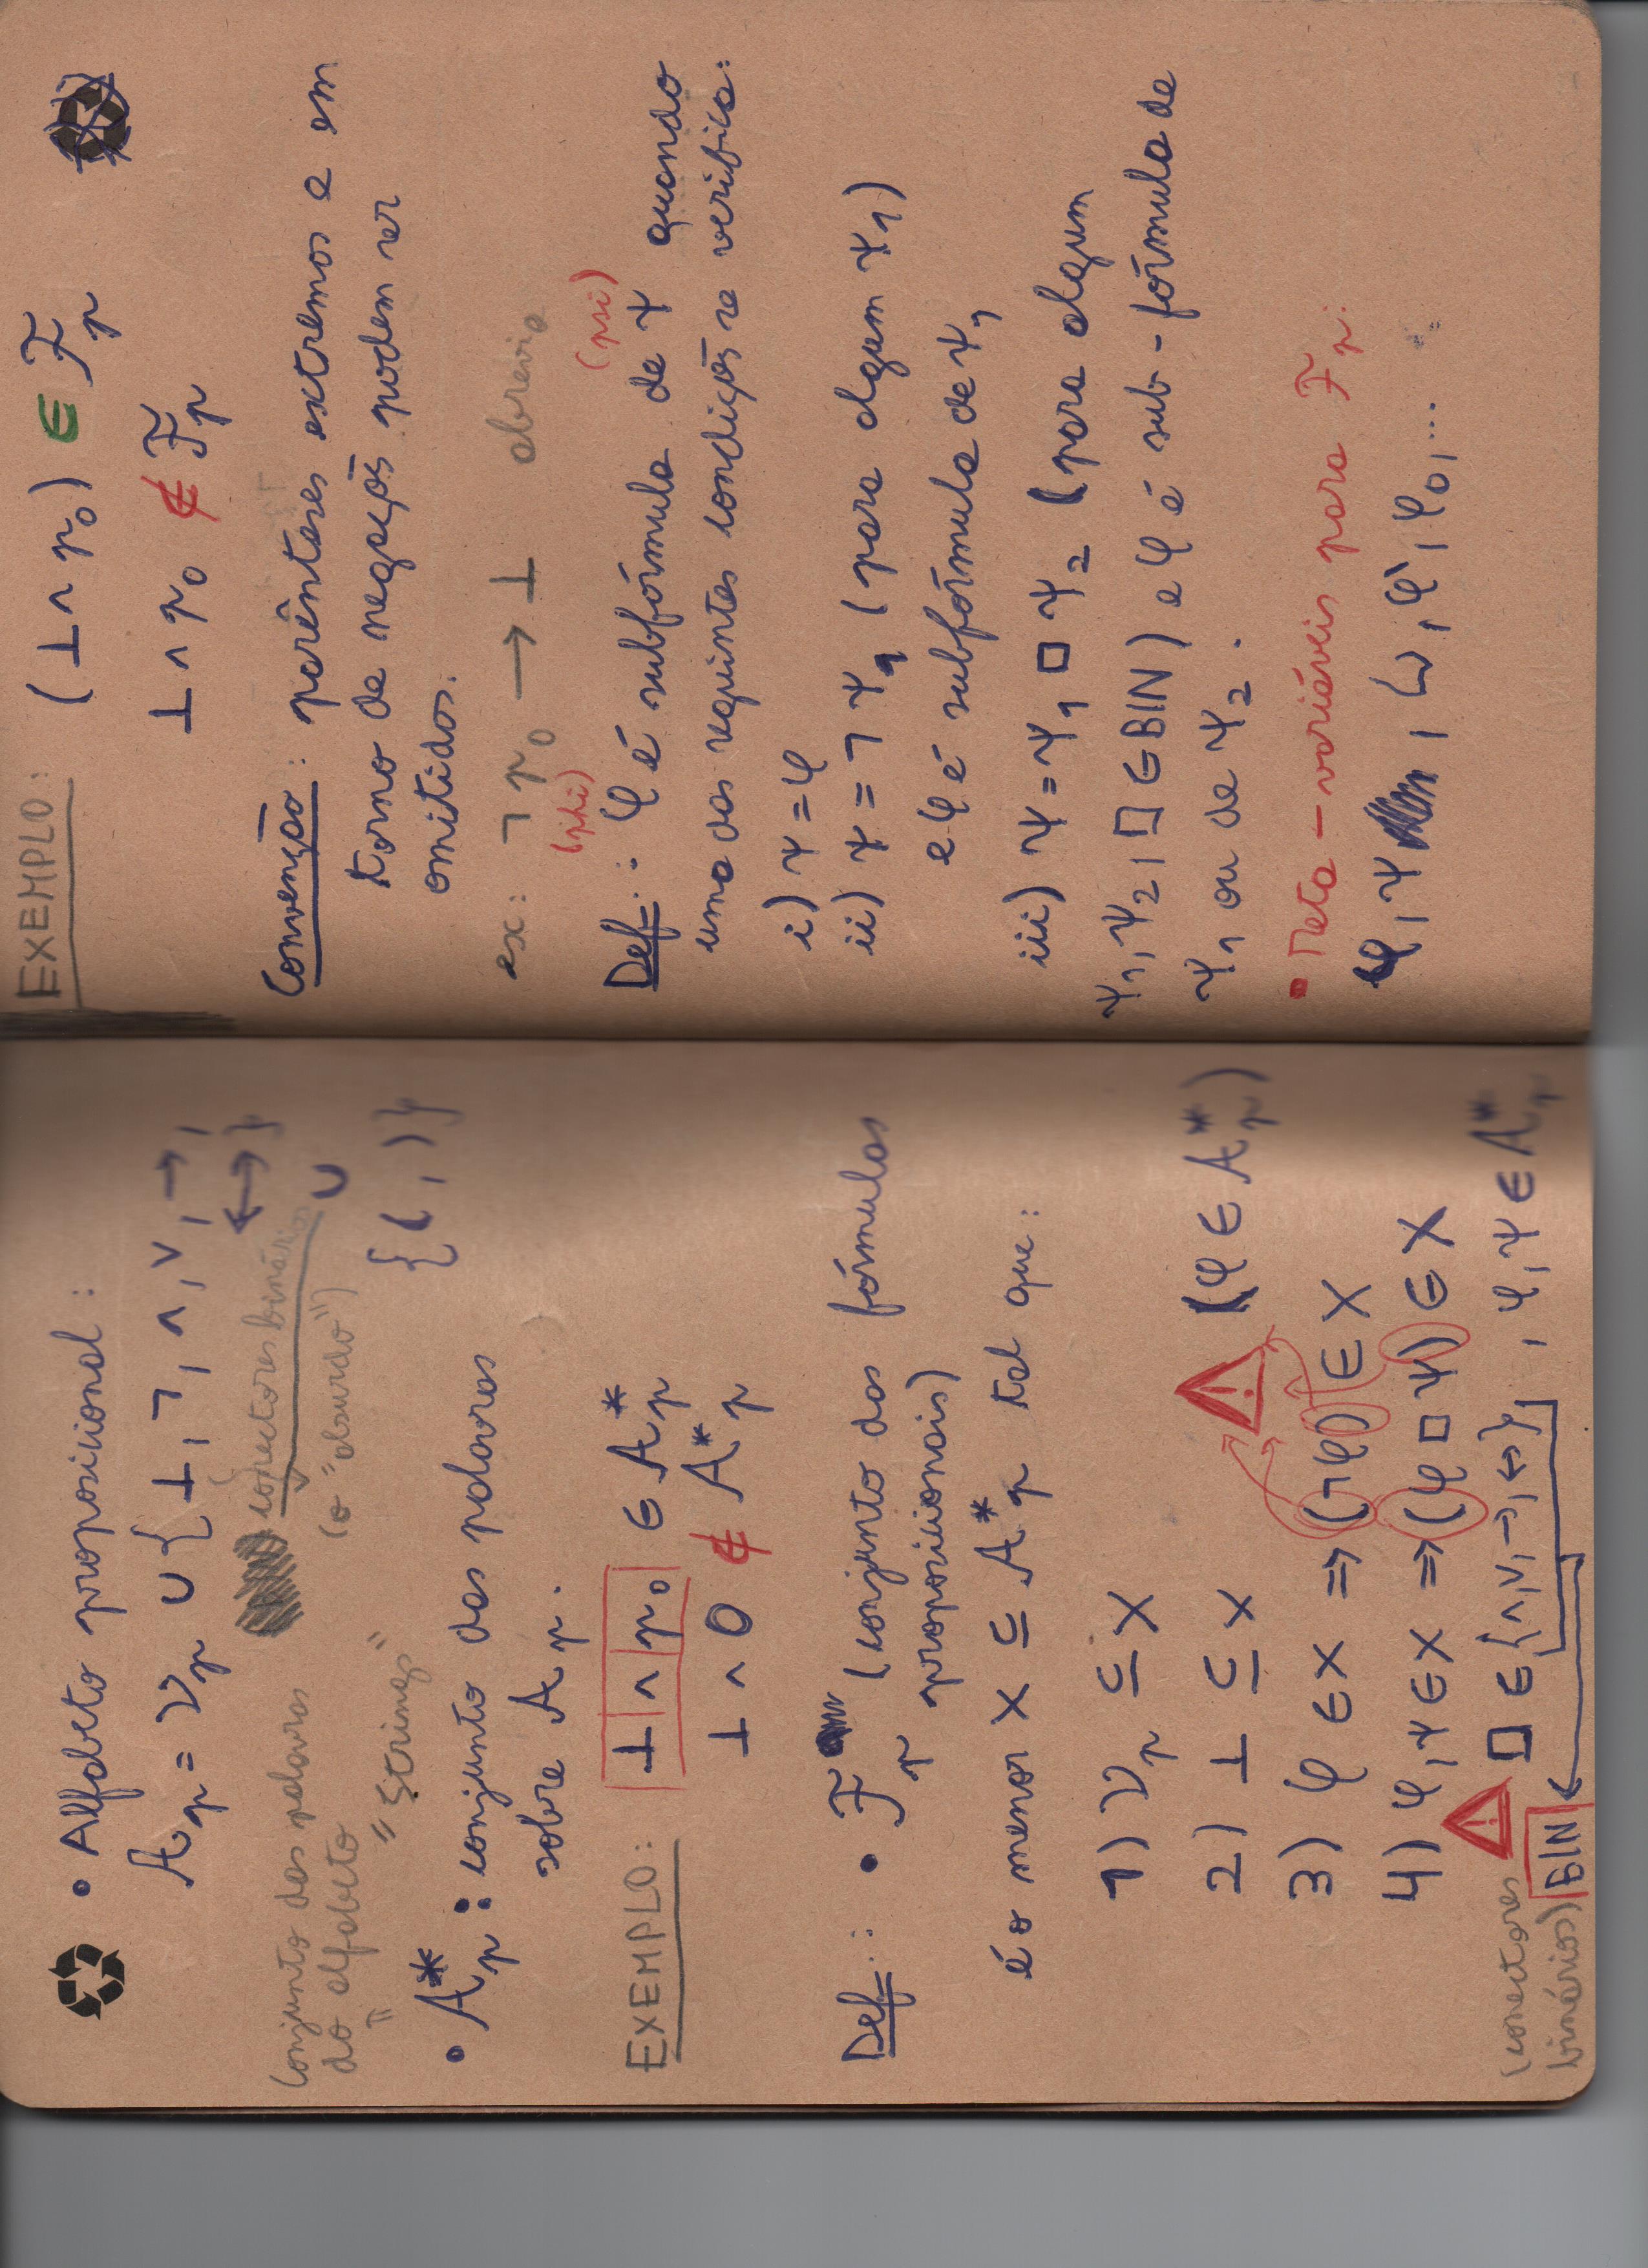 • Alfabeto proposicional:
Ap = Vp ∪ {⊥, ¬, ∧, ∨, →,
↔}
conectores binários
(o "absurdo")
∪
{(, )}
conjunto das palavras
do alfabeto
"Strings"
• A*p: conjunto das palavras
sobre Ap.
EXEMPLO: ⊥ ∧ p₀ ∈ A*p
⊥ ∧ 0 ∉ A*p
Def.: • Fp (conjunto das fórmulas
proposicionais)
é o menor X ⊆ A*p tal que:
1) Vp ⊆ X
2) ⊥ ⊆ X
! (φ ∈ A*p)
3) φ ∈ X ⇒ (¬φ) ∈ X
4) φ, ψ ∈ X ⇒ (φ □ ψ) ∈ X
! □ ∈ {∧, ∨, →, ↔}, , φ, ψ ∈ A*p
(conectores
binários) BIN
EXEMPLO: (⊥ ∧ p₀) ∈ Fp
⊥ ∧ p₀ ∉ Fp
Convenção: parênteses extremos e em
torno de negaçõs podem ser
omitidos.
ex: ¬p₀ → ⊥ abrevia
(phi) (psi)
Def.: φ é subfórmula de ψ quando
uma das seguintes condiçõs se verifica:
i) ψ = φ
ii) ψ = ¬ψ₁ (para algum ψ₁)
e φ é subfórmula de ψ₁
iii) ψ = ψ₁ □ ψ₂ (para algum
ψ₁, ψ₂, □ ∈ BIN) e φ é sub-fórmula de
ψ₁ ou de ψ₂.
• Meta-variáveis para Fp:
φ, ψ, ω, φ', φ₀, ...